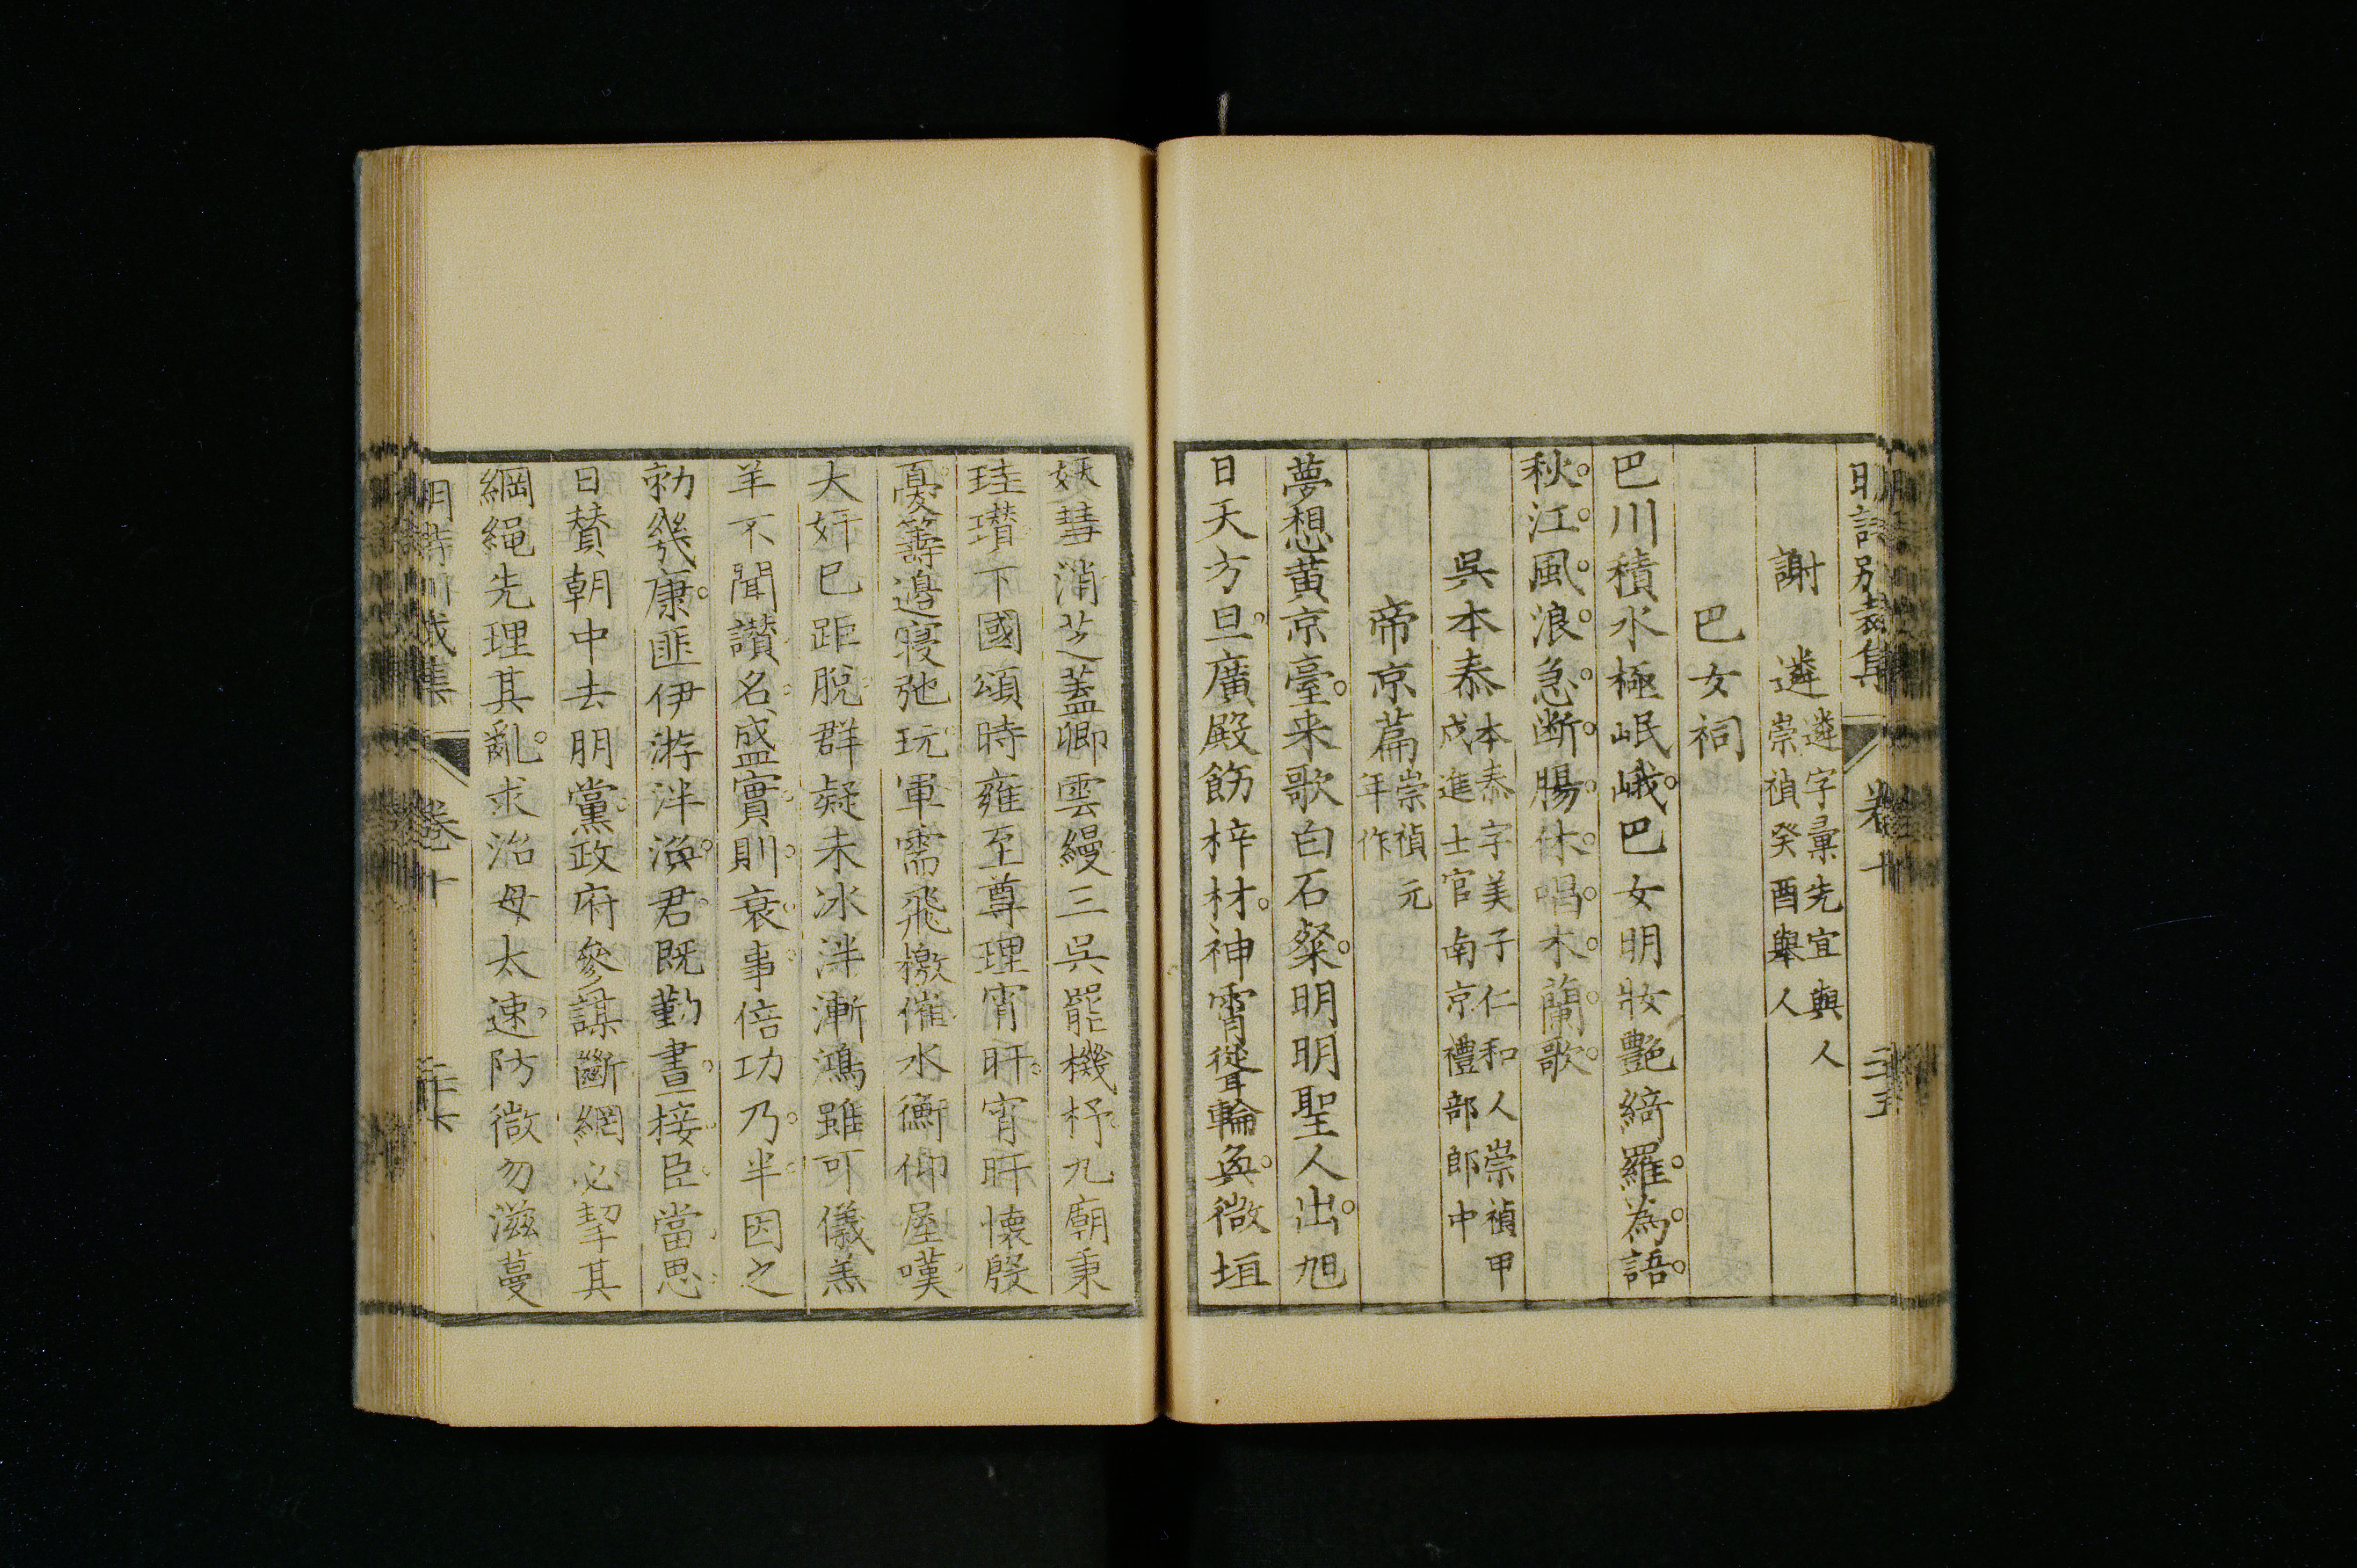 明詩別裁集 卷十 二十五
謝遴 遴字彙先宜興人
崇禎癸酉舉人
巴女祠
巴川積水極岷峨巴女明妝艷綺羅為語
秋江風浪急断腸休唱木蘭歌
吳本泰 本泰字美子仁和人崇禎甲
戌進士官南京禮部郎中
帝京篇 崇禎元
年作
夢想黄京臺来歌白石粲明明聖人出旭
日天方旦廣殿飭梓材神霄聳輪奐微垣
妖彗消芝蓋卿雲縵三吳罷機杼九廟秉
珪瓚下國頌時雍至尊理宵旰宵旰懷殷
憂籌邊寢弛玩軍需飛檄催水衡仰屋嘆
大奸已距脫群疑未冰泮漸鴻雖可儀羔
羊不聞讚名盛實則衰事倍功乃半因之
勑幾康匪伊游泮渙君既勤晝接臣當思
日贊朝中去朋黨政府參謀斷網必挈其
綱繩先理其亂求治毋太速防微勿滋蔓
明詩別裁集 卷十 二十六